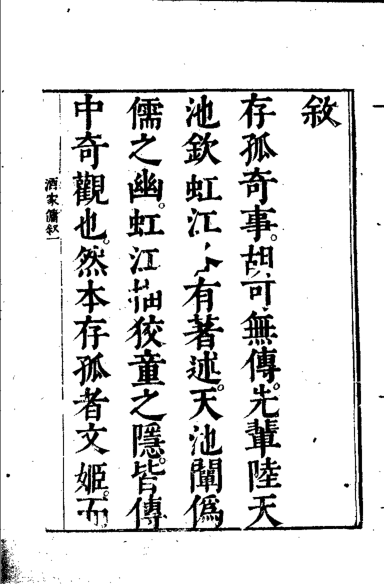 敘
存孤奇事。胡可無傳。先輩陸天
池欽虹江有著述。天池闡僞
儒之幽。虹江描狡童之隱。皆傳
中奇觀也。然本存孤者文姬。而
酒家傭敘一